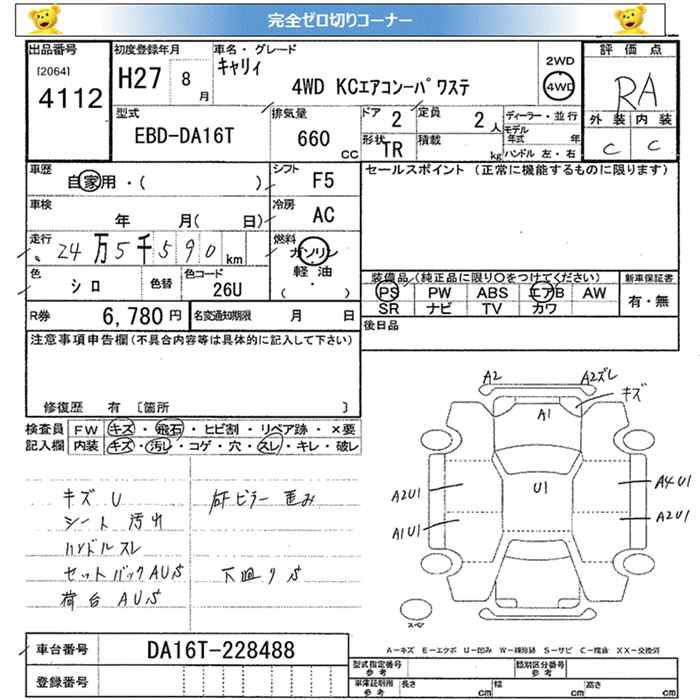 完全ゼロ切りコーナー
出品番号 [2064] 4112
初度登録年月 H27 8月
車名・グレード キャリィ 4WD KCエアコンーパワステ
2WD 4WD
評価点 RA
外装 内装
C C
型式 EBD-DA16T
排気量 660 CC
ドア 2
定員 2人
形状 TR
積載 kg
ディーラー・並行
モデル年式 年
ハンドル 左・右
車歴 自家用・( )
シフト F5
セールスポイント (正常に機能するものに限ります)
車検 年 月( 日)
冷房 AC
走行 24万5千590km
燃料 ガソリン・軽油・( )
色 シロ 色替
色コード 26U
装備品(純正品に限り〇をつけてください)
新車保証書
PS PW ABS エアB AW
有・無
SR ナビ TV カワ
R券 6,780円
名変通知期限 月 日
後日品
注意事項申告欄(不具合内容等は具体的に記入して下さい)
修復歴 有 [箇所 ]
検査員 FW キズ・飛石・ヒビ割・リペア跡・×要
記入欄 内装 キズ・汚レ・コゲ・穴・スレ・キレ・破レ
キズ U
シート 汚れ
ハンドルスレ
セットバックAUS
荷台 AUS
ピラー 歪み
下廻りS
A2 A2ズレ
キズ
A1
U1
A2U1
A4U1
A1U1
A2U1
スペア
A-キズ E-エクボ U-凹み W-補修跡 S-サビ C-腐食 XX-交換済
車台番号 DA16T-228488
登録番号
型式指定番号 参考
類別区分番号 参考
車庫証明用 参考 長さ cm 幅 cm 高さ cm